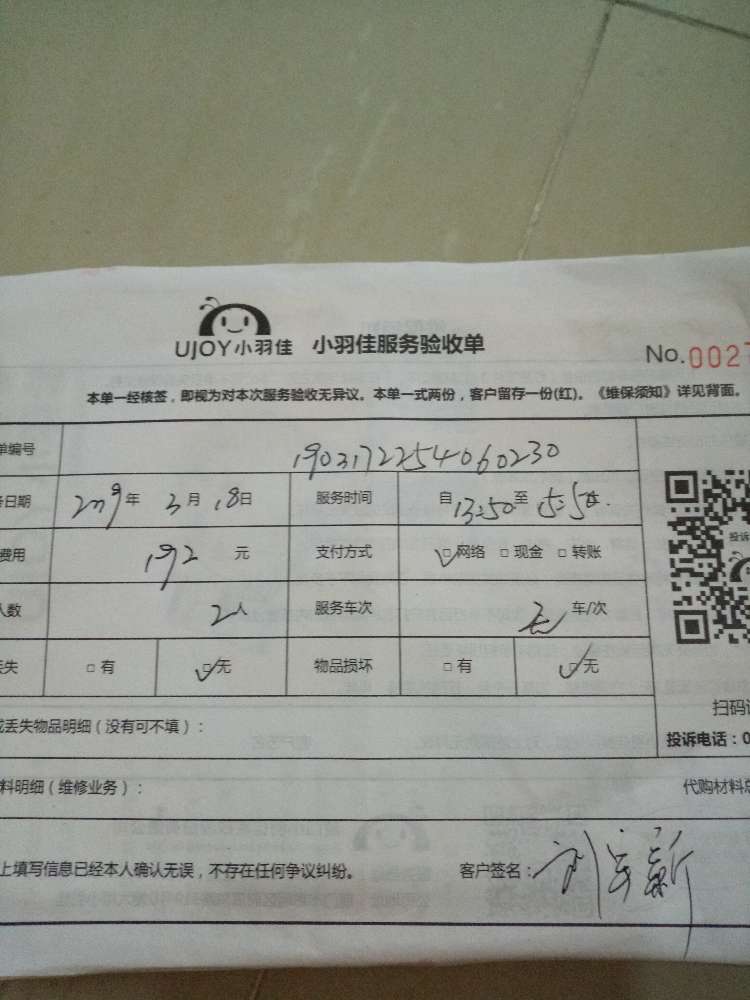 UJOY小羽佳 小羽佳服务验收单
No.0027
本单一经核签，即视为对本次服务验收无异议。本单一式两份，客户留存一份(红)。《维保须知》详见背面。
单编号 1903172254060230
务日期 2019年 3月 18日 服务时间 自13:50至15:50
费用 192 元 支付方式 ☑网络 □现金 □转账
人数 2人 服务车次 无 车/次
丢失 □有 ☑无 物品损坏 □有 ☑无
投诉
扫码
或丢失物品明细（没有可不填）：
投诉电话：0
料明细（维修业务）：
代购材料总
上填写信息已经本人确认无误，不存在任何争议纠纷。 客户签名：